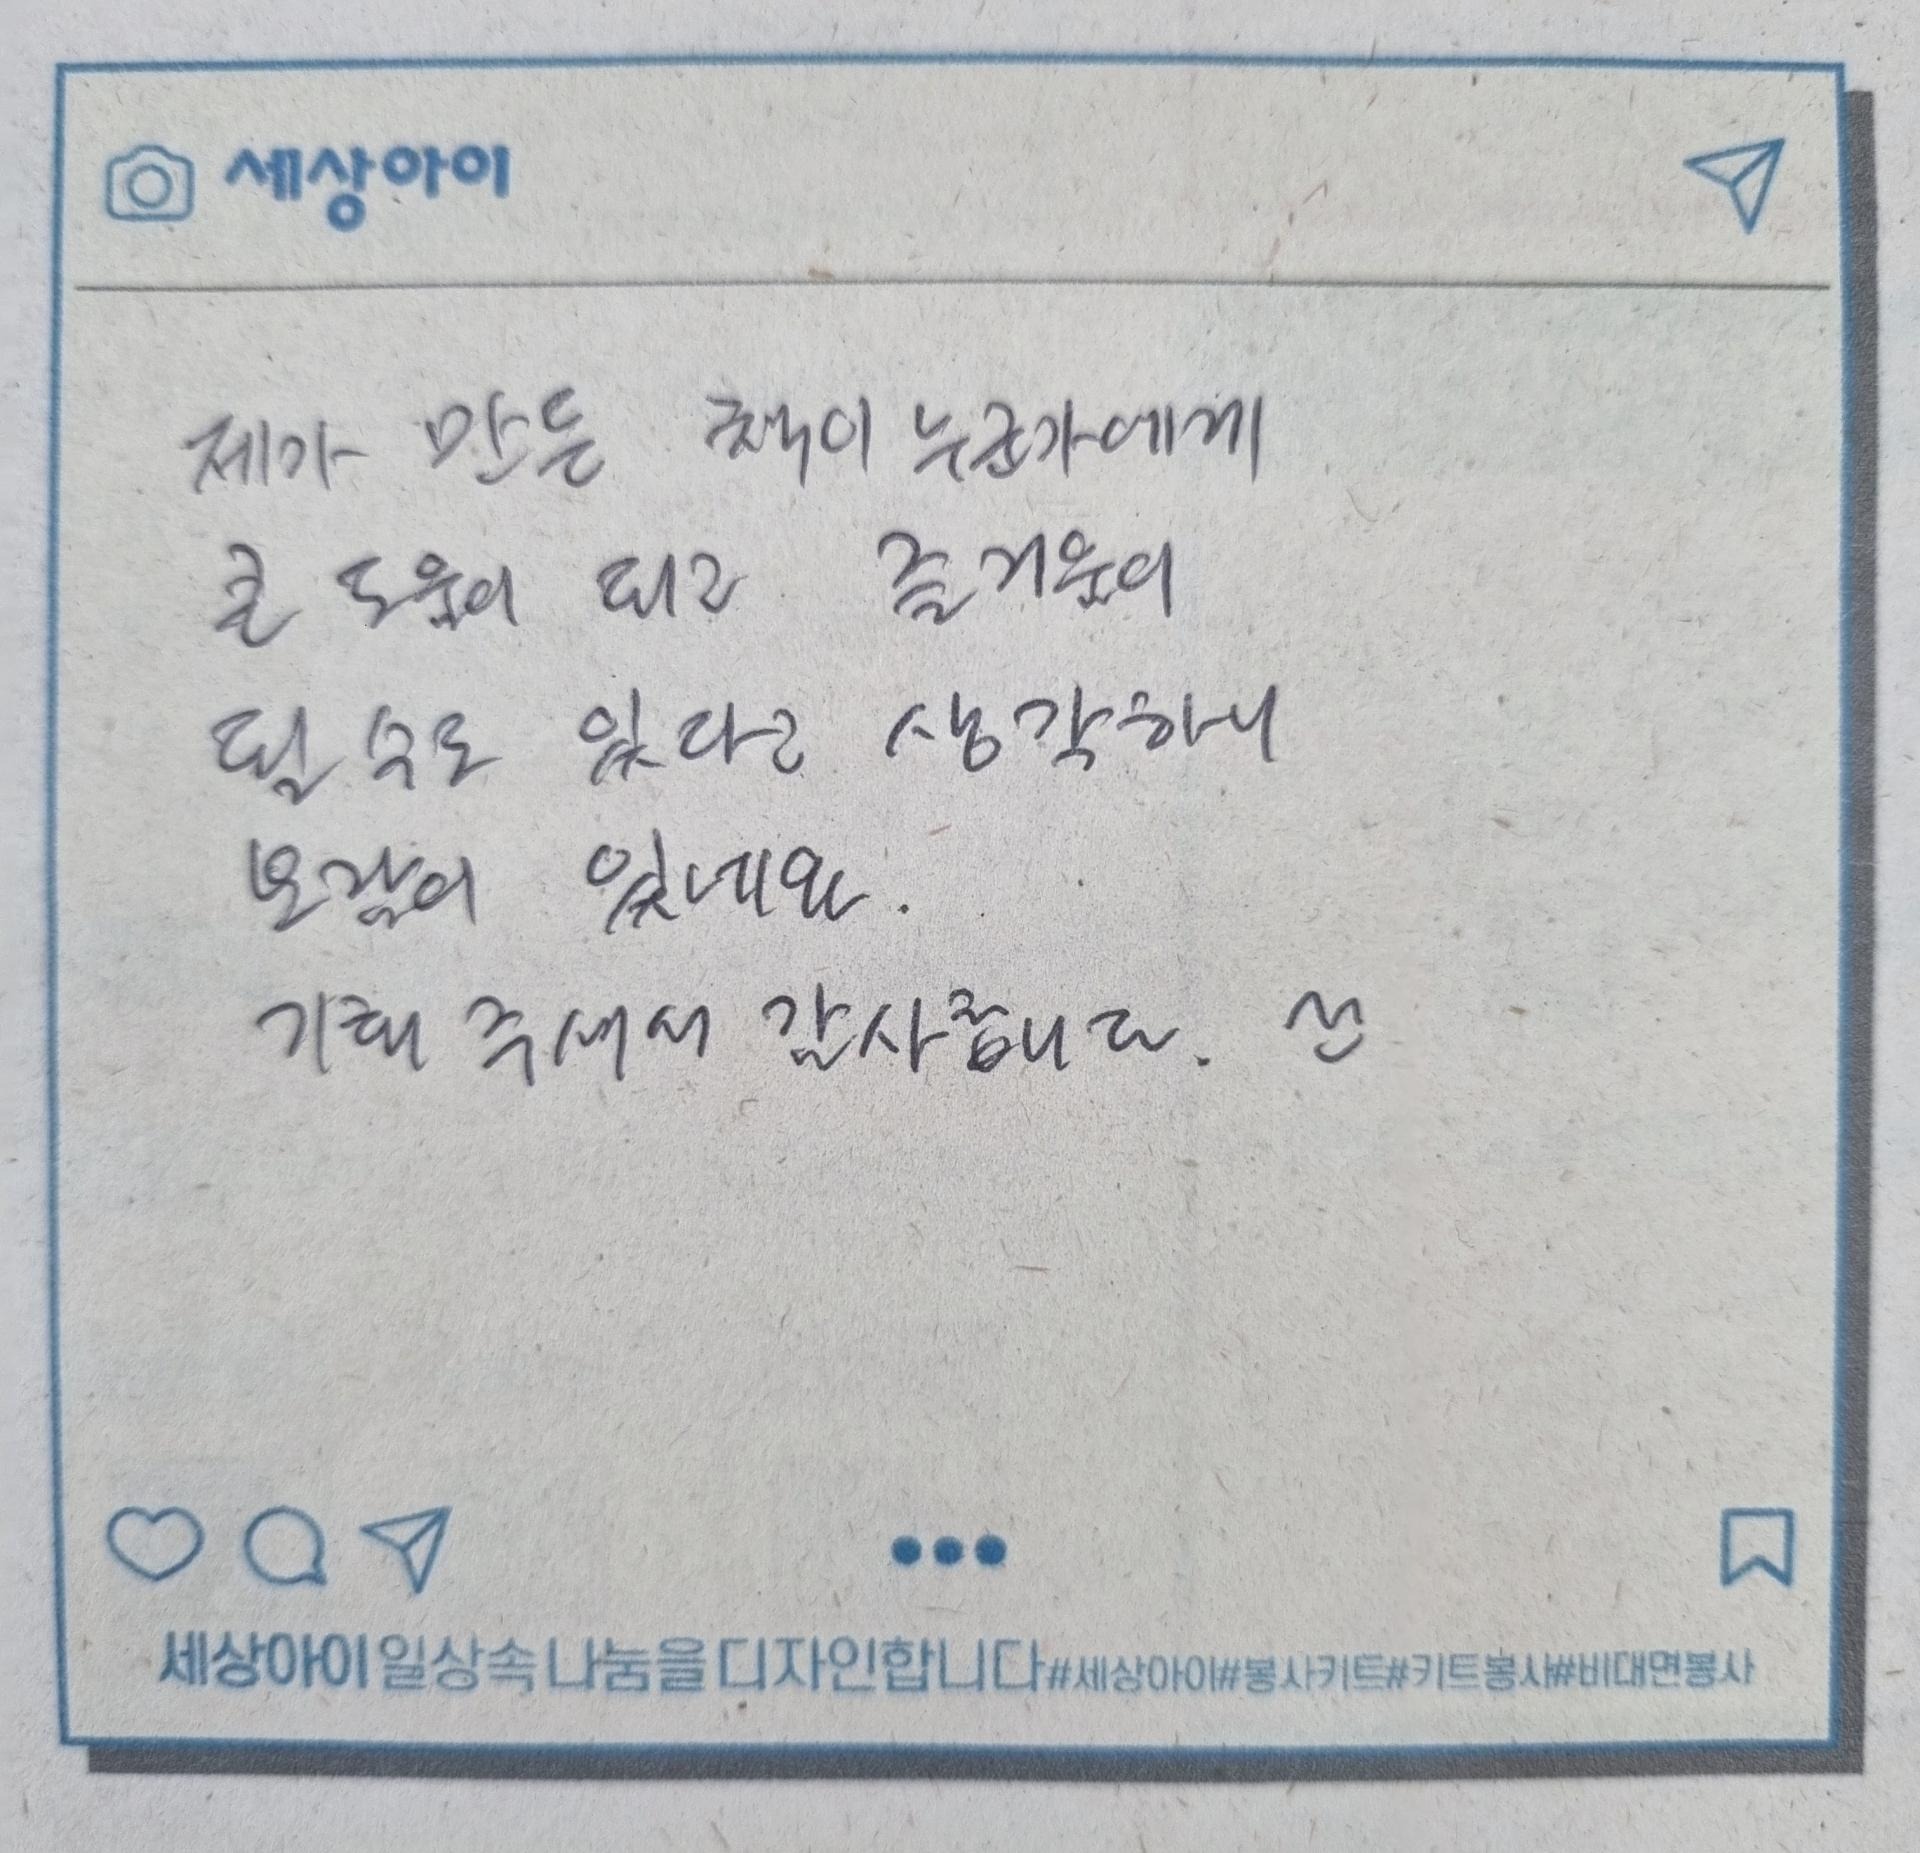 세상아이
제가 만든 책이 누군가에게
큰 도움이 되고 즐거움이
될 수도 있다고 생각하니
보람이 있네요.
주셔서 감사합니다.
세상아이 일상 속 나눔을 디자인합니다 #세상아이#봉사키트#키트봉사#비대면봉사